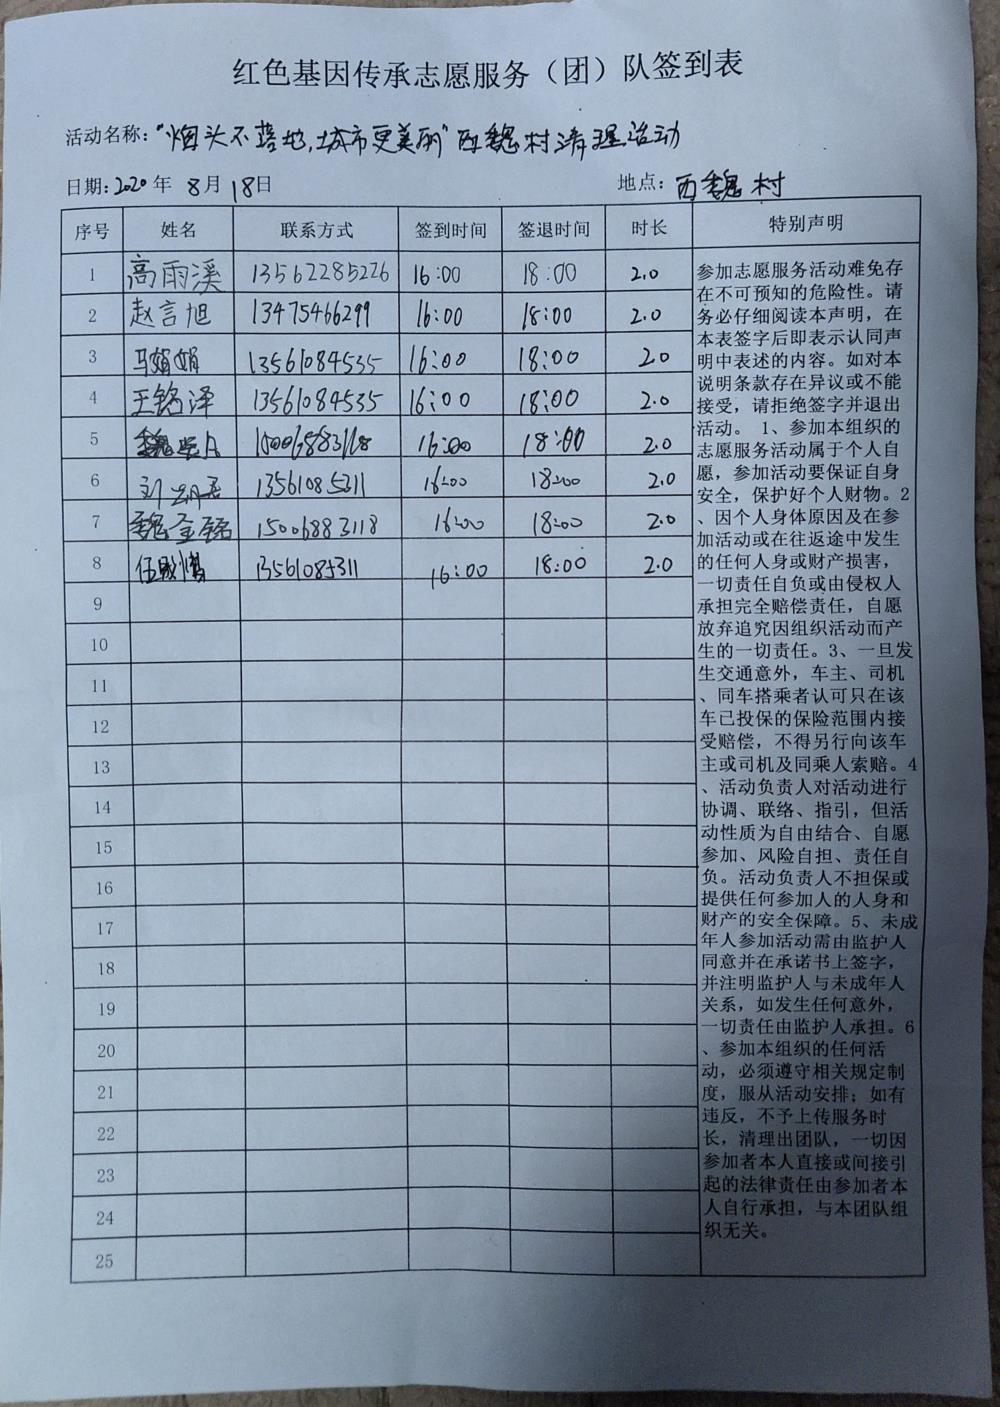 红色基因传承志愿服务（团）队签到表
活动名称：“烟头不落地，城市更美丽”西魏村清理活动
日期：2020年 8月18日 地点：西魏村
序号 姓名 联系方式 签到时间 签退时间 时长 特别声明
1 高雨溪 13562285226 16:00 18:00 2.0
2 赵言旭 13475466299 16:00 18:00 2.0
3 马娟娟 13561084535 16:00 18:00 2.0
4 王铭泽 13561084535 16:00 18:00 2.0
5 魏 15006883118 16:00 18:00 2.0
6 刘 13561085311 16:00 18:00 2.0
7 魏金铭 15006883118 16:00 18:00 2.0
8 伍 13561085311 16:00 18:00 2.0
9
10
11
12
13
14
15
16
17
18
19
20
21
22
23
24
25
参加志愿服务活动难免存
在不可预知的危险性。请
务必仔细阅读本声明，在
本表签字后即表示认同声
明中表述的内容。如对本
说明条款存在异议或不能
接受，请拒绝签字并退出
活动。 1、参加本组织的
志愿服务活动属于个人自
愿，参加活动要保证自身
安全，保护好个人财物。2
、因个人身体原因及在参
加活动或在往返途中发生
的任何人身或财产损害，
一切责任自负或由侵权人
承担完全赔偿责任，自愿
放弃追究因组织活动而产
生的一切责任。3、一旦发
生交通意外，车主、司机
、同车搭乘者认可只在该
车已投保的保险范围内接
受赔偿，不得另行向该车
主或司机及同乘人索赔。4
、活动负责人对活动进行
协调、联络、指引，但活
动性质为自由结合、自愿
参加、风险自担、责任自
负。活动负责人不担保或
提供任何参加人的人身和
财产的安全保障。5、未成
年人参加活动需由监护人
同意并在承诺书上签字，
并注明监护人与未成年人
关系，如发生任何意外，
一切责任由监护人承担。6
、参加本组织的任何活
动，必须遵守相关规定制
度，服从活动安排；如有
违反，不予上传服务时
长，清理出团队，一切因
参加者本人直接或间接引
起的法律责任由参加者本
人自行承担，与本团队组
织无关。